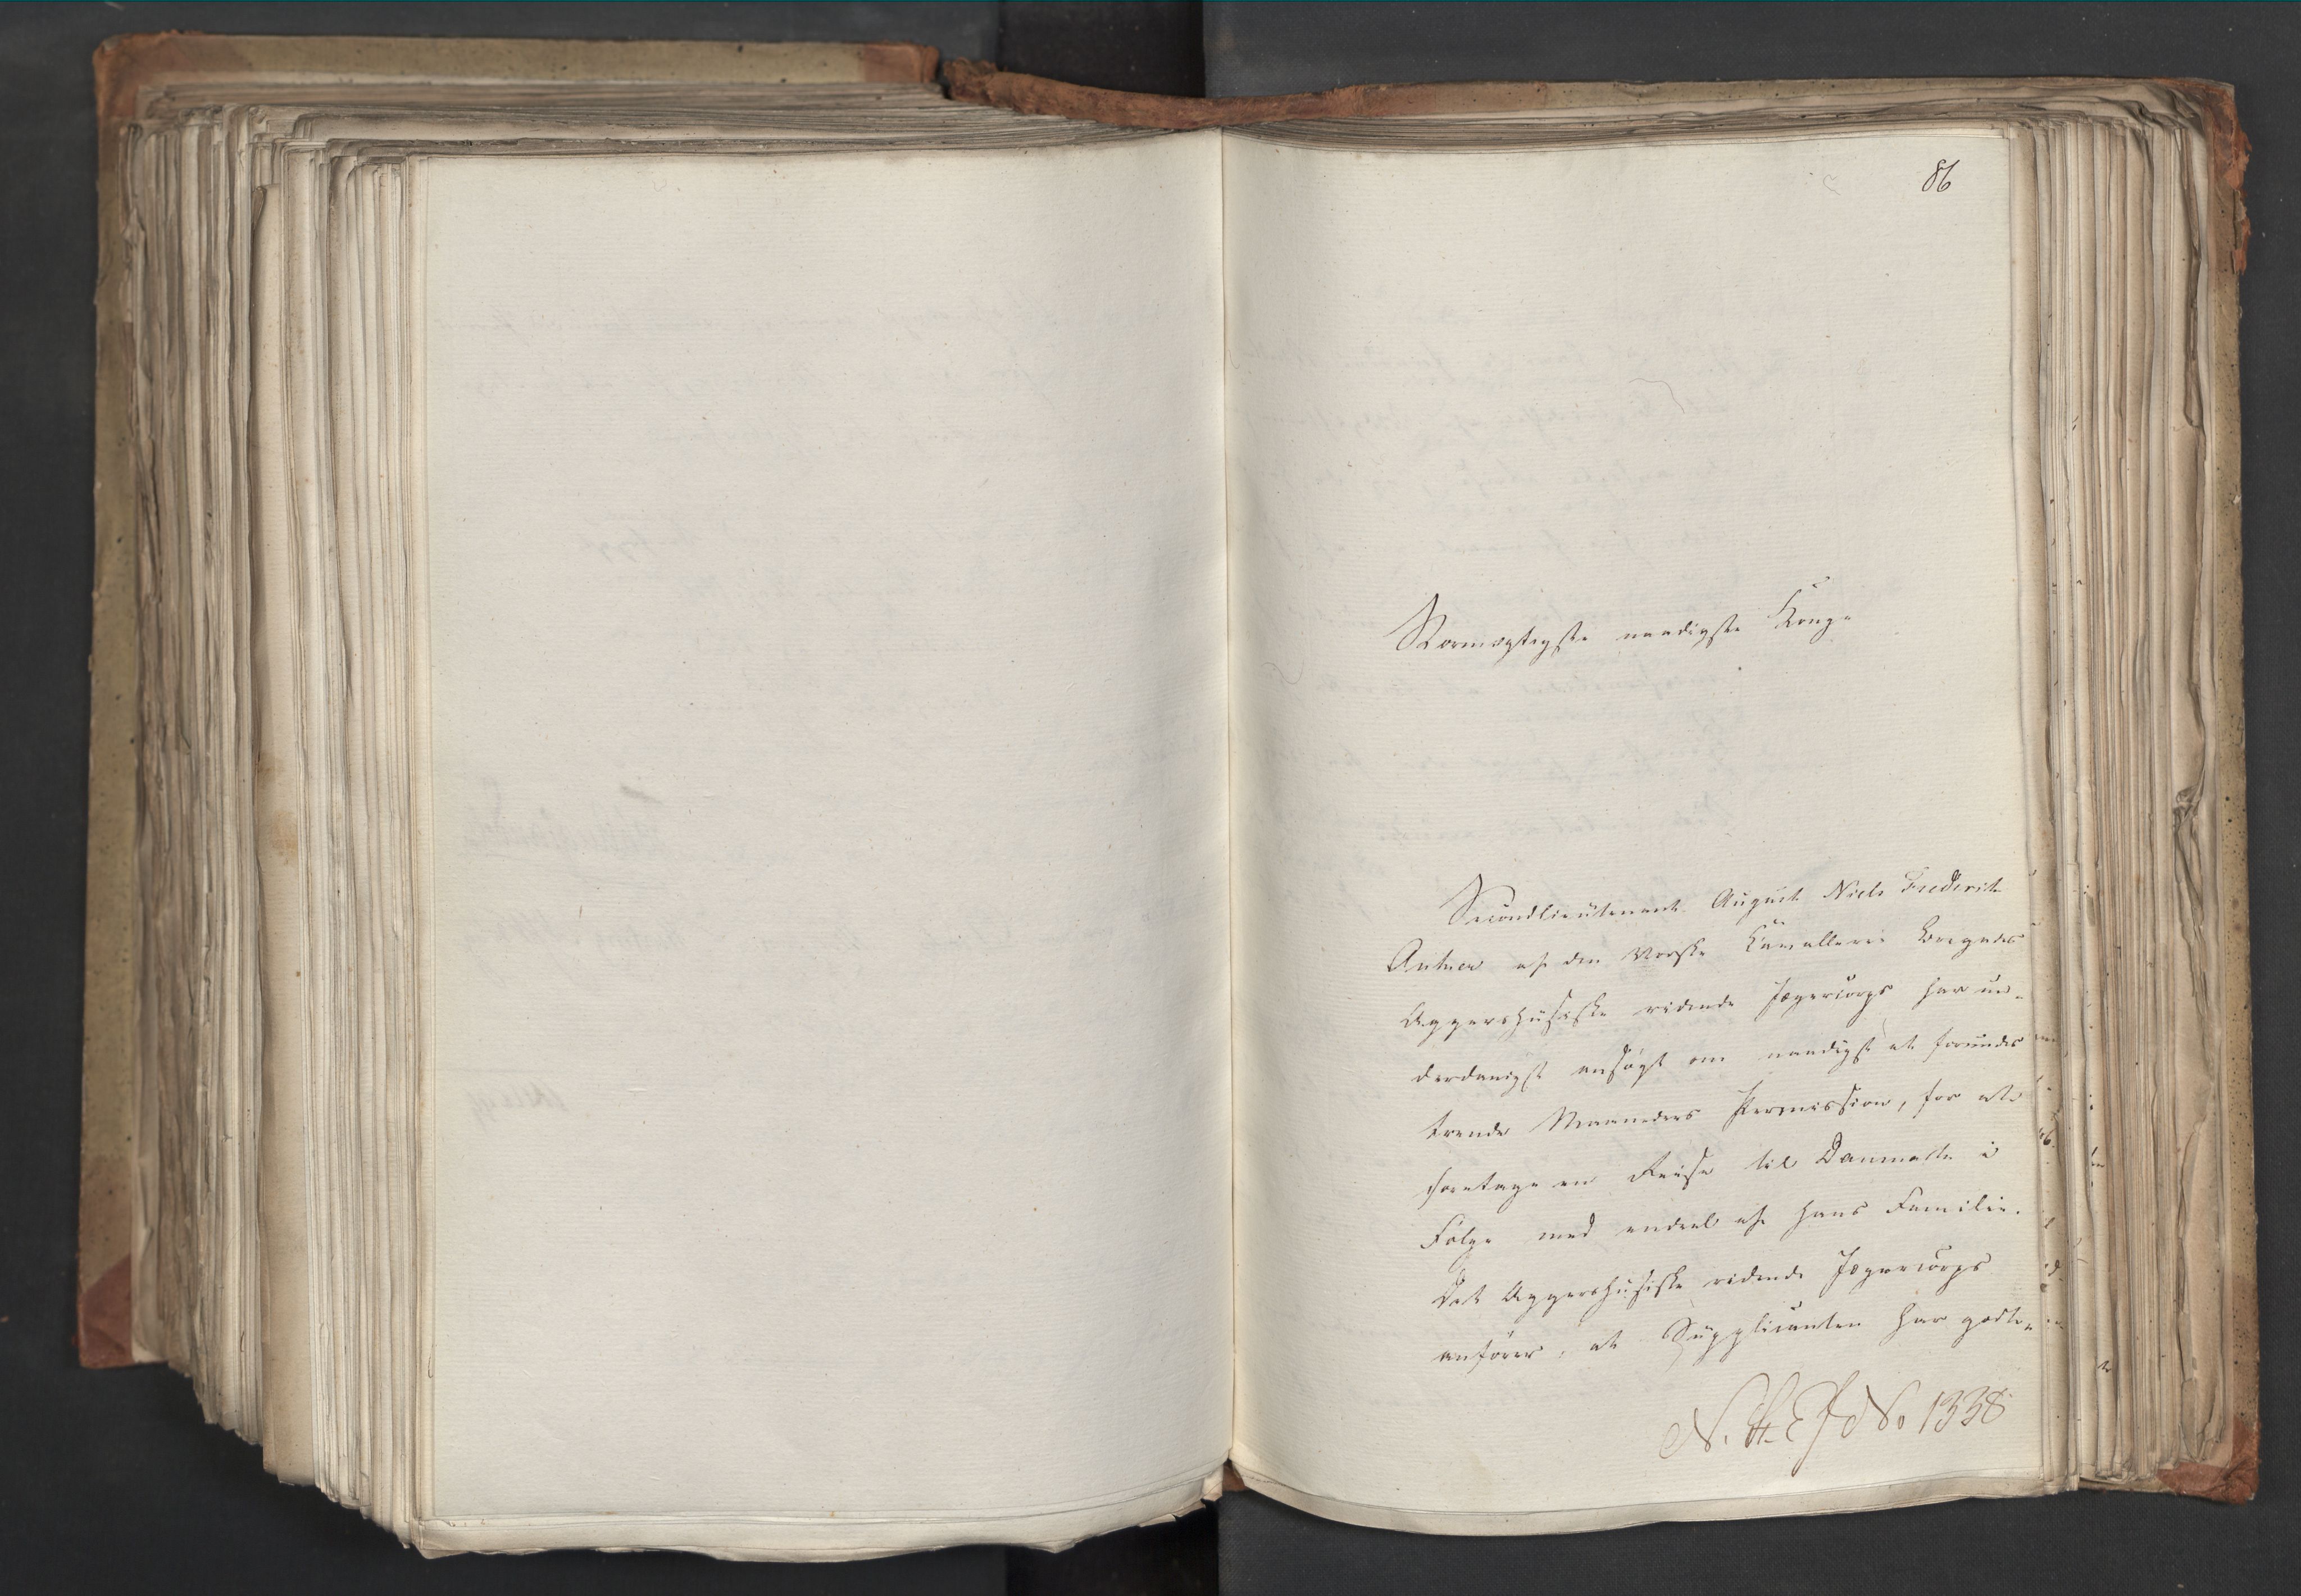 86
Stormægtigste naadigste Konge
Secondlieutenant August Niels Frederich
af den Norske Cavallerie Brigades
Aggershusiske ridende Jægercorps har un-
derdanigst ansögt om naadigst at forundes
trende Maaneders Permission, for at
foretage en Reise til Danmark i
Fölge med endeel af hans Familie.
Det Aggershusiske ridende Jægercorps
anförer, at Supplicanten har godt-
No 1338